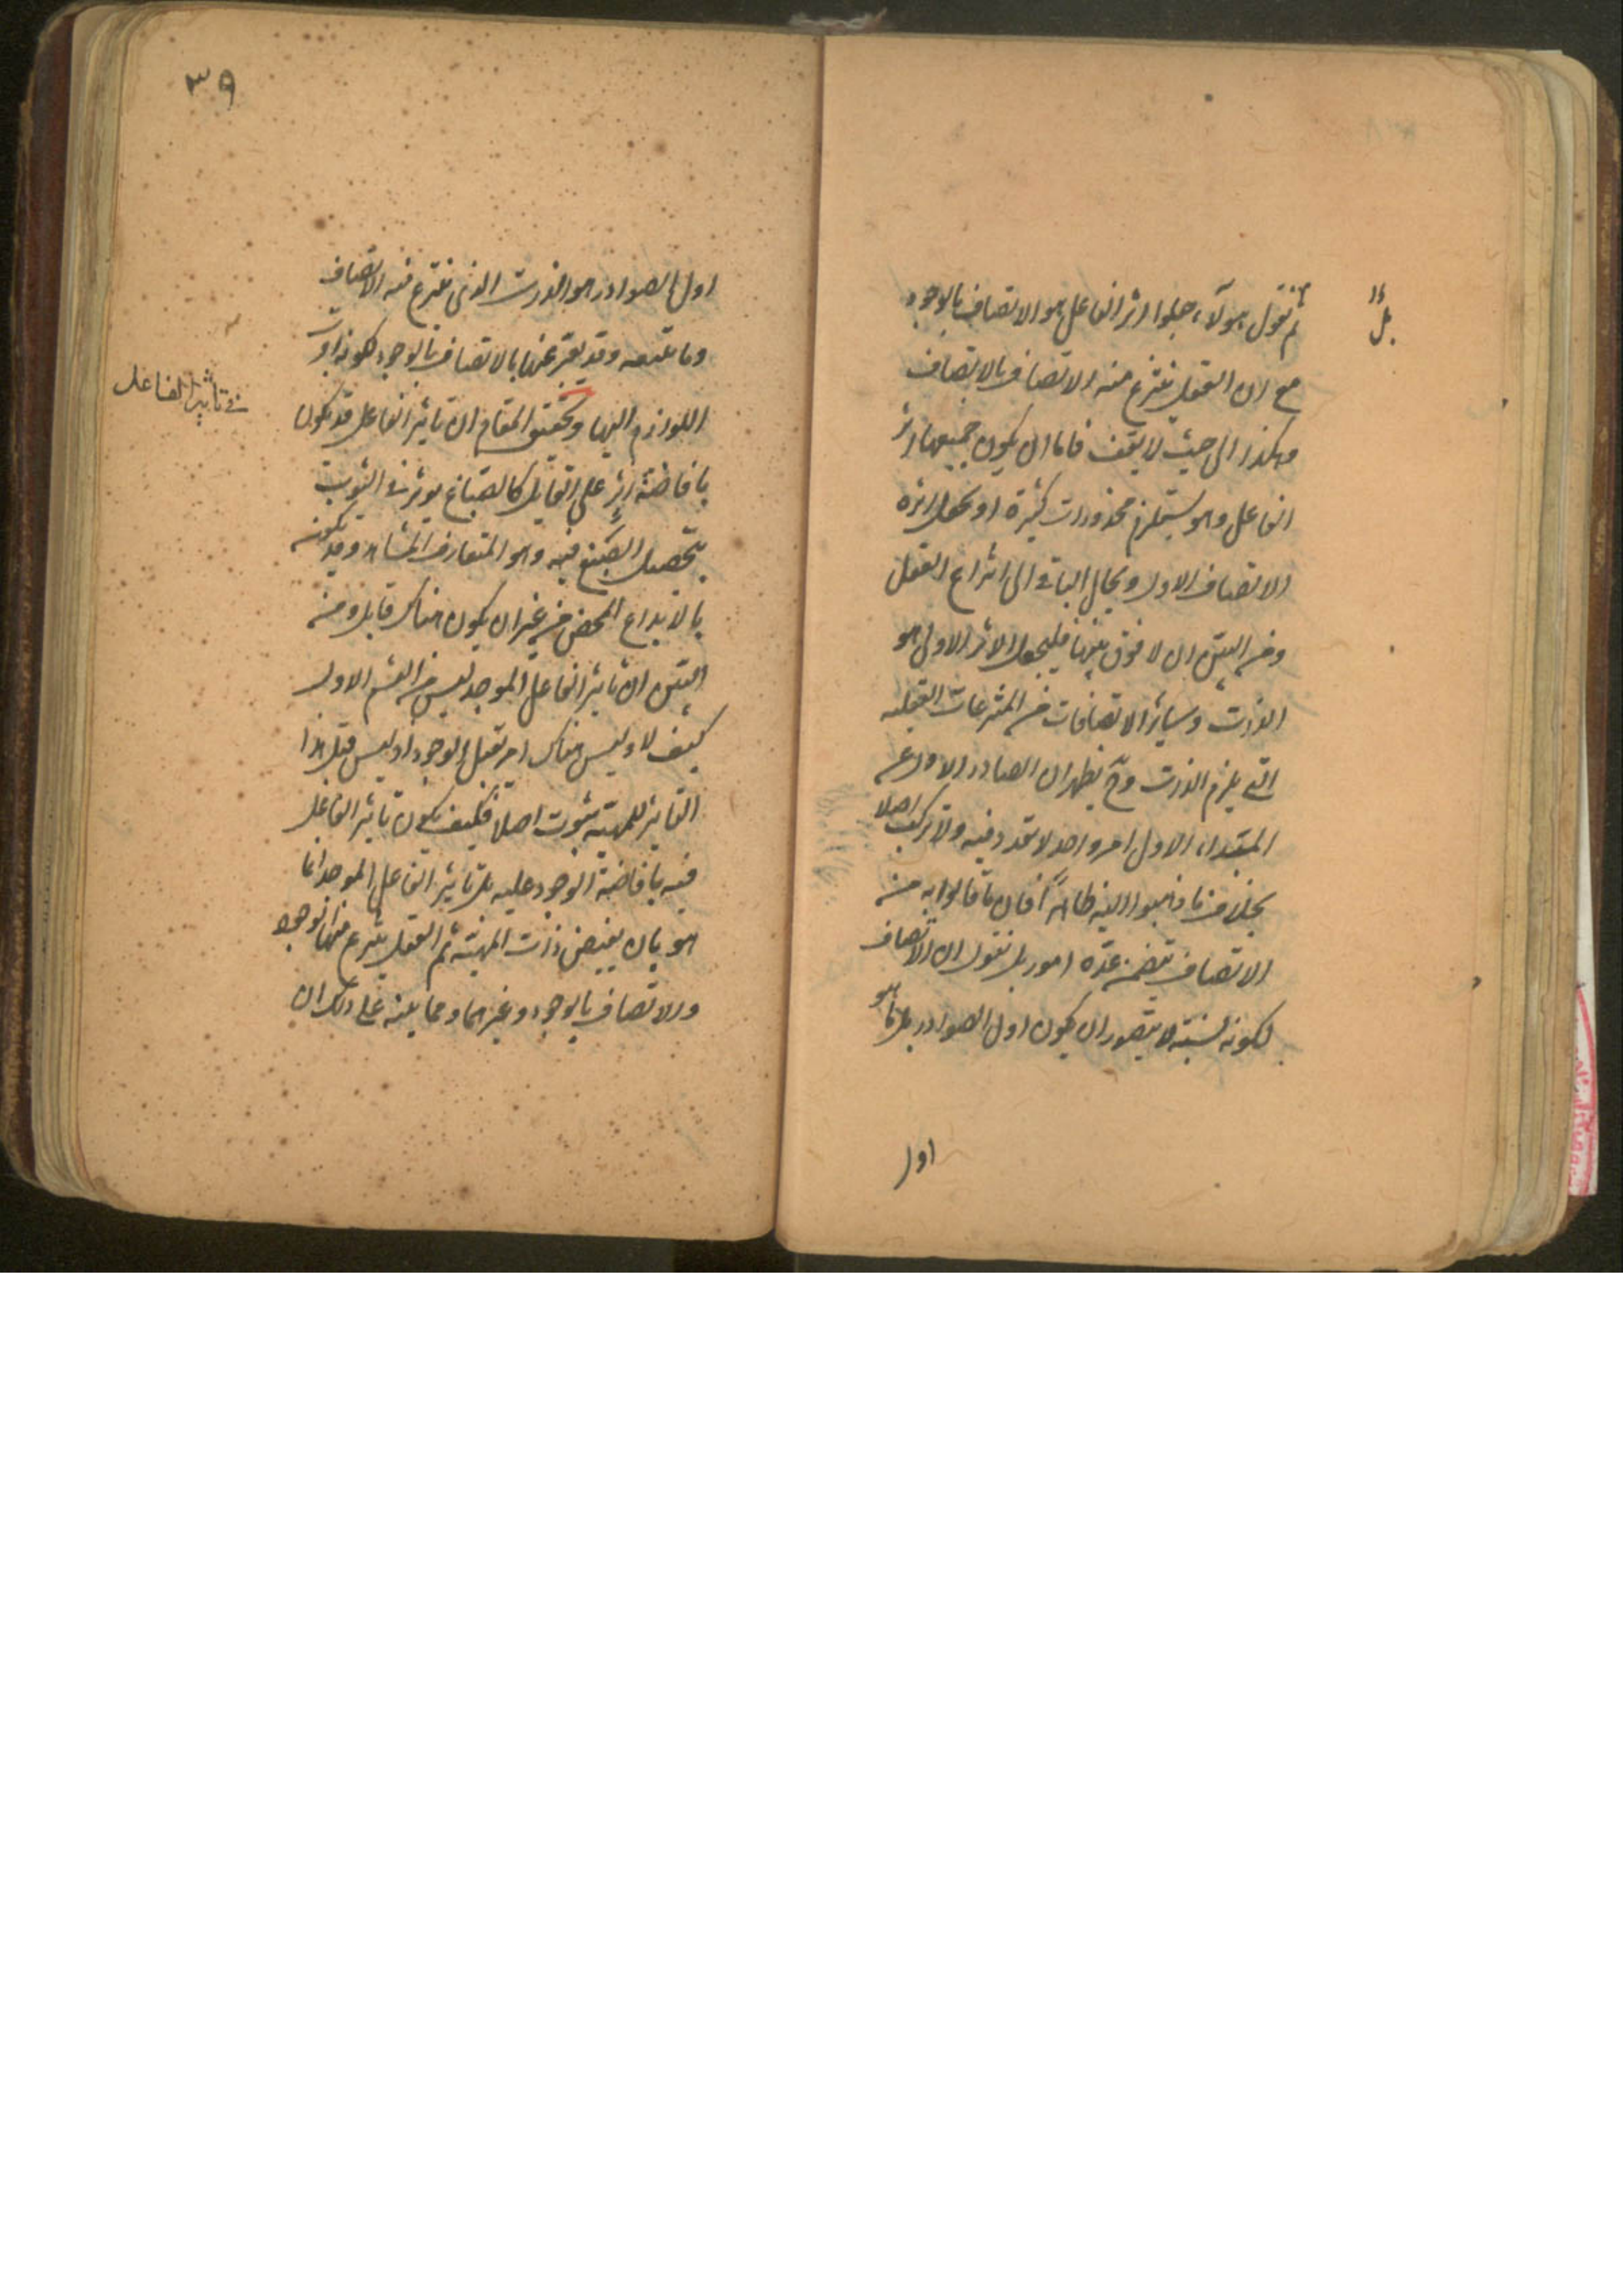 ثم نقول هولاء جعلوا اثر الفاعل هو الاتصاف بالوجود
مع ان العقل ينتزع منه الاتصاف بالاتصاف
وهكذا الى حيث لا يقف فاما ان يكون جميعها اثر
الفاعل وهو يستلزم محذورات كثيرة او يجعل اثره
الاتصاف الاول ويحال الباقي الى انتزاع العقل
ومن البين ان لا فرق بينها فليجعل الاثر الاولى هو
الذات وساير الاتصافات من المنتزعات العقليه
التي يلزم الذات وح يظهر ان الصادر الاول عن
المبتداء الاول امر واحد لا تعدد فيه ولا تركيب اصلا
بخلاف ما ذهبوا اليه ظاهرا فان ما قالوا به من
الاتصاف يتضمن عدة امور بل نقول ان الاتصاف
لكونه نسبة لا يتصور ان يكون اول الصوادر بل ما هو
اول
٣٩
اول الصوادر هو الذات الذي ينتزع منه الاتصاف
وما يتبعه وقد يعبر عنها بالاتصاف بالوجود لكونه اقرب
اللوازم اليها وتحقيق المقام ان تاثير الفاعل قد يكون
في تاثير الفاعل
بافاضة اثر على القابل كالصباغ يوثر في الثوب
بتحصيل الصبغ فيه وهو المتعارف المشاهد وقد يكون
بالابداع المحض من غير ان يكون هناك قابل ومن
البين ان تاثير الفاعل الموجد ليس من القسم الاول
كيف لا وليس هناك امر يقبل الوجود اذ ليس قبل هذا
التاثير للمهية ثبوت اصلا فكيف يكون تاثير الفاعل
فيه بافاضة الوجود عليه بل تاثير الفاعل الموجد انما
هو بان يفيض ذات المهية ثم العقل ينتزع منها الوجود
والاتصاف بالوجود وغيرهما ومما ينبه على ذلك ان